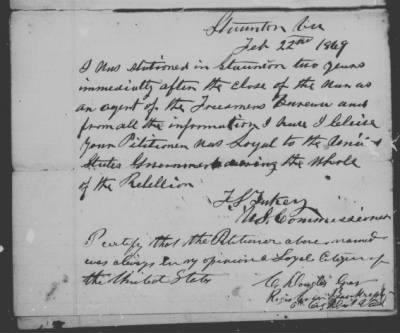 Staunton Va
Feb 22nd 1869
I was stationed in Staunton two years
immediatly after the close of the war as
an agent of the Freesmens Bureau and
from all the information I have I believe
your Petitioner was Loyal to the Unit
States Government during the whole
of the Rebellion
U.S. Commissioner
I certify that the Petitioner above named
was always in my opinion a Loyal Citizen of
the United States
C Douglas Gray